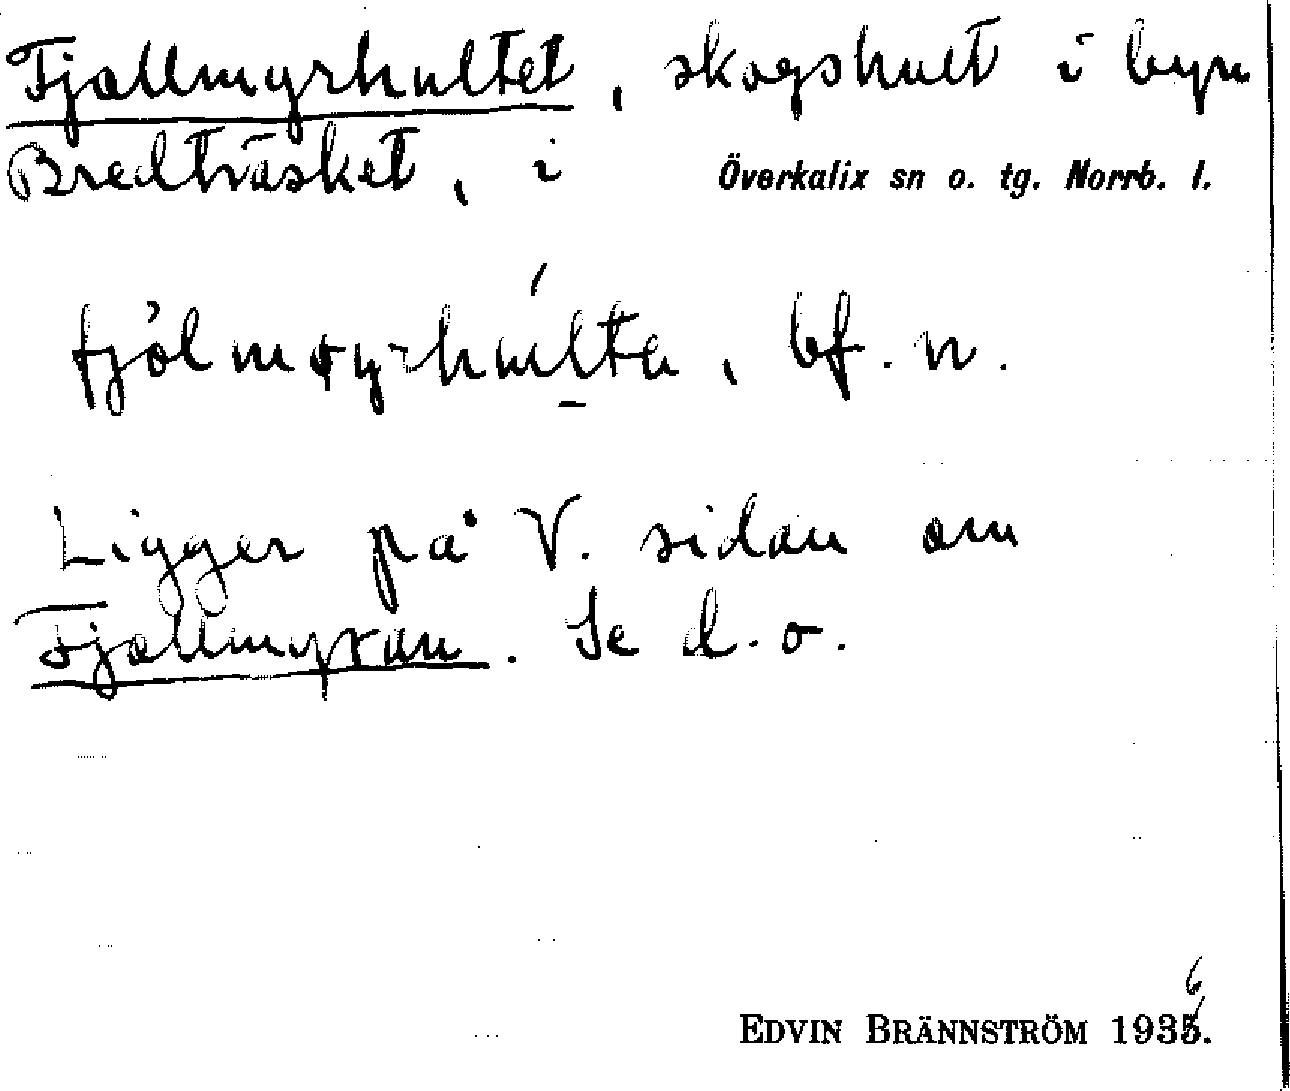 Fjallmyrhultet, skogshult i byn
Bredträsket, i Överkalix sn o. tg. Norrb. l.
bf. n.
Ligger på V. sidan om
Fjallmyran. Se d. o.
6
EDVIN BRÄNNSTRÖM 1935.